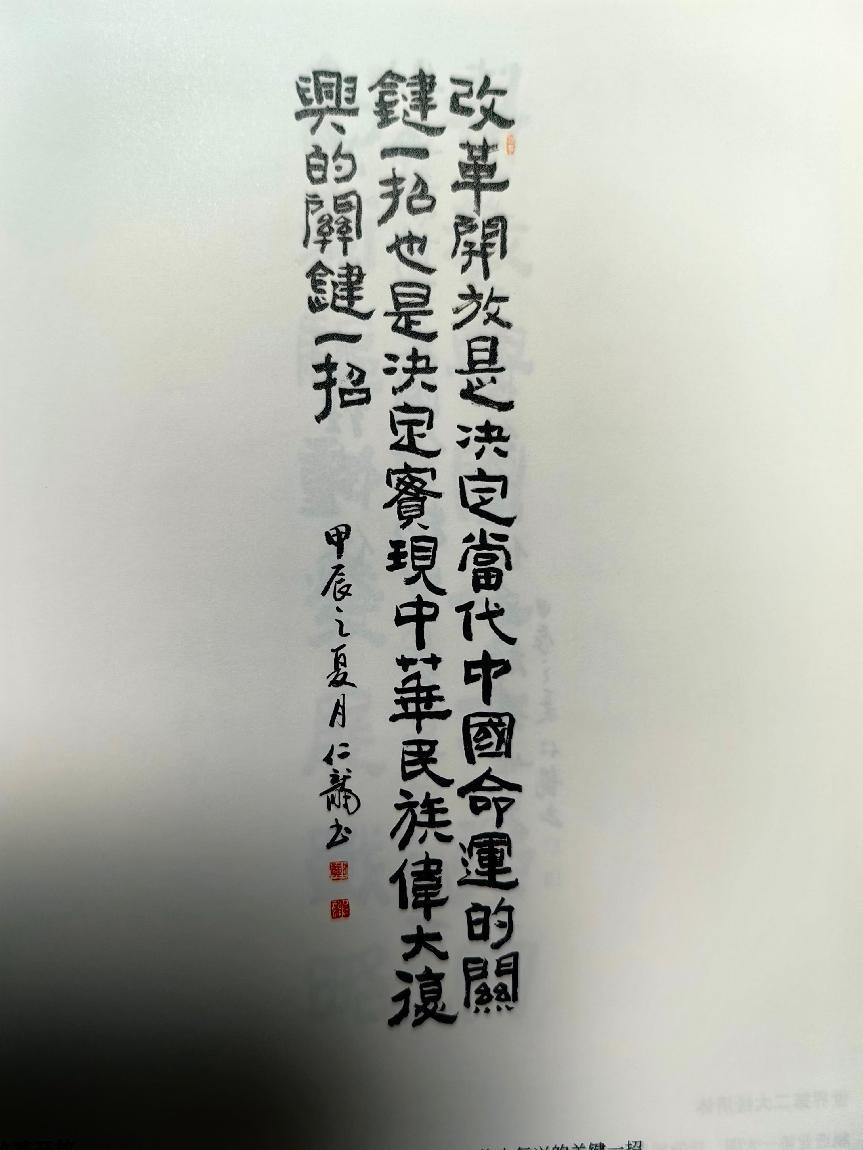 改革開放是決定當代中國命運的關
鍵一招也是決定實現中華民族偉大復
興的關鍵一招
甲辰之夏月仁龍书
的关键一招